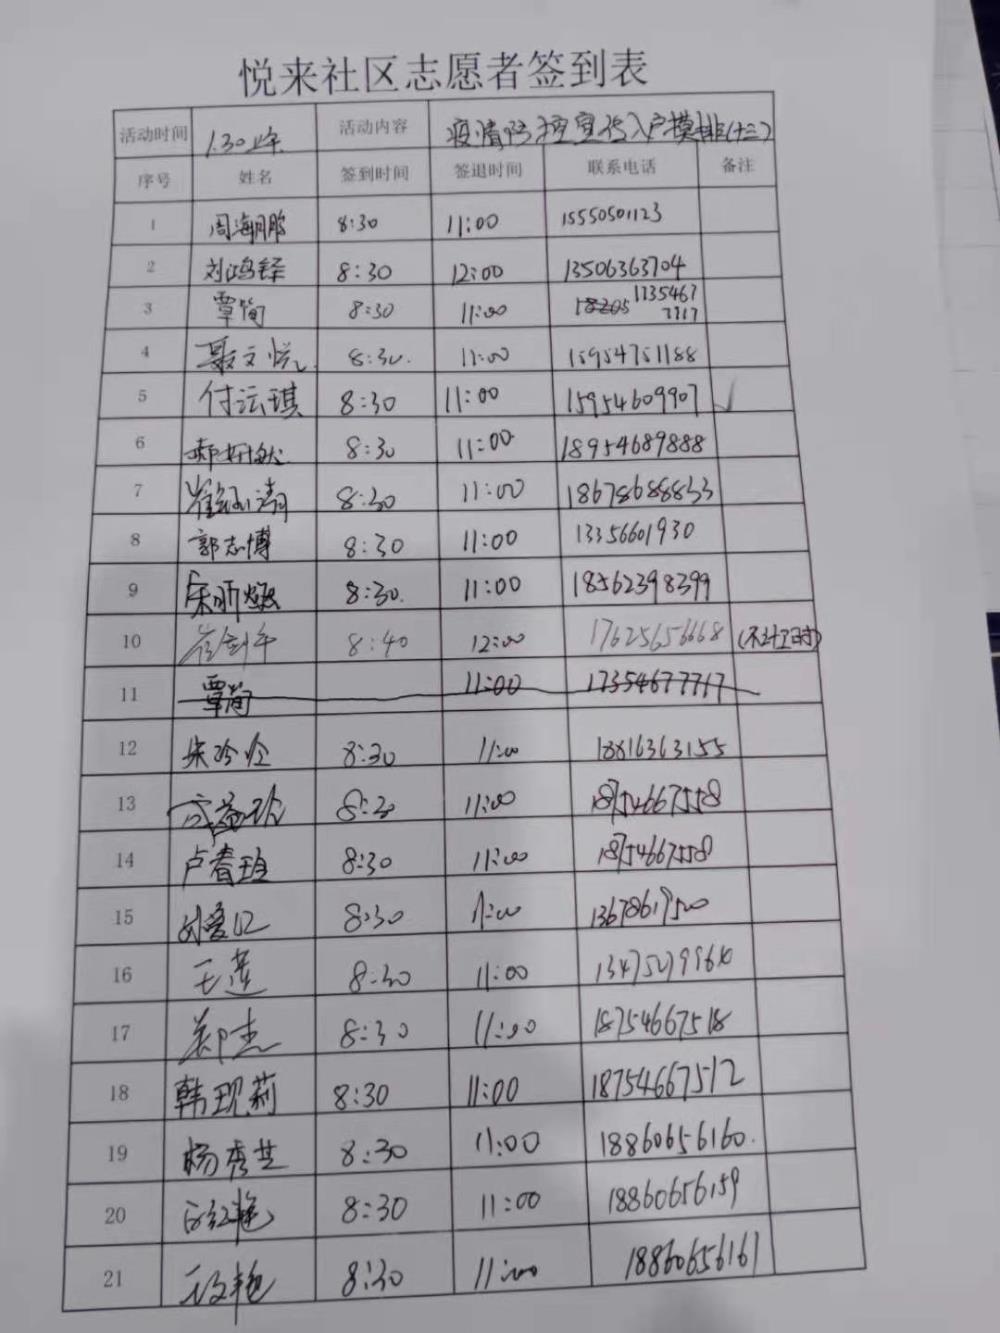 悦来社区志愿者签到表
活动时间 1.30上午 活动内容 疫情防控宣传入户摸排(十三)
序号 姓名 签到时间 签退时间 联系电话 备注
1 周海鹏 8:30 11:00 15550501123
2 刘鸿铎 8:30 12:00 13506363704
3 覃筒 8:30 11:00
4 聂文悦 8:30. 11:00 15954751188
5 付沄琪 8:30 11:00 15954609907 √
6 8:30 11:00 18954689888
7 8:30 11:00 18678688833
8 郭志博 8:30 11:00 13356601930
9 8:30. 11:00 18562398399
10 8:40 12:00 17625656668 (不计工时)
11 覃筒 11:00 17354677717
12 8:30 11:00 18816363155
13 8:30 11:00 18754667558
14 卢春玲 8:30 11:00 18754667558
15 刘爱江 8:30 11:00 13678619500
16 王莲 8:30 11:00
17 郑杰 8:30 11:00 18754667518
18 韩现莉 8:30 11:00 18754667512
19 杨秀芝 8:30 11:00 18860656160.
20 8:30 11:00 18860656159
21 8:30 11:00 18860656161